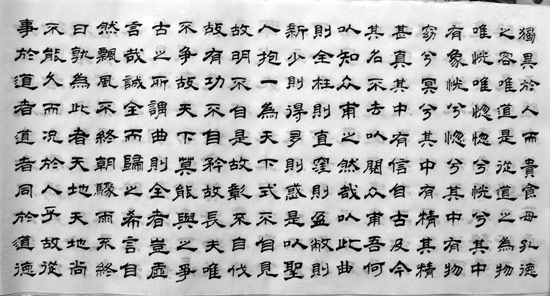 獨異於人而貴食母孔德
之容唯道是從道之為物
唯恍唯惚惚兮恍兮其中
有象恍兮惚兮其中有物
窈兮冥兮其中有精其精
甚真其中有信自古及今
其名不去以閱眾甫吾何
以知眾甫之然哉以此曲
則全枉則直窪則盈敝則
新少則得多則惑是以聖
人抱一為天下式不自見
故明不自是故彰不自伐
故有功不自矜故長夫唯
不爭故天下莫能與之爭
古之所謂曲則全者豈虛
言哉誠全而歸之希言自
然飄風不終朝驟雨不終
日孰為此者天地天地尚
不能久而況於人乎故從
事於道者道者同於道德